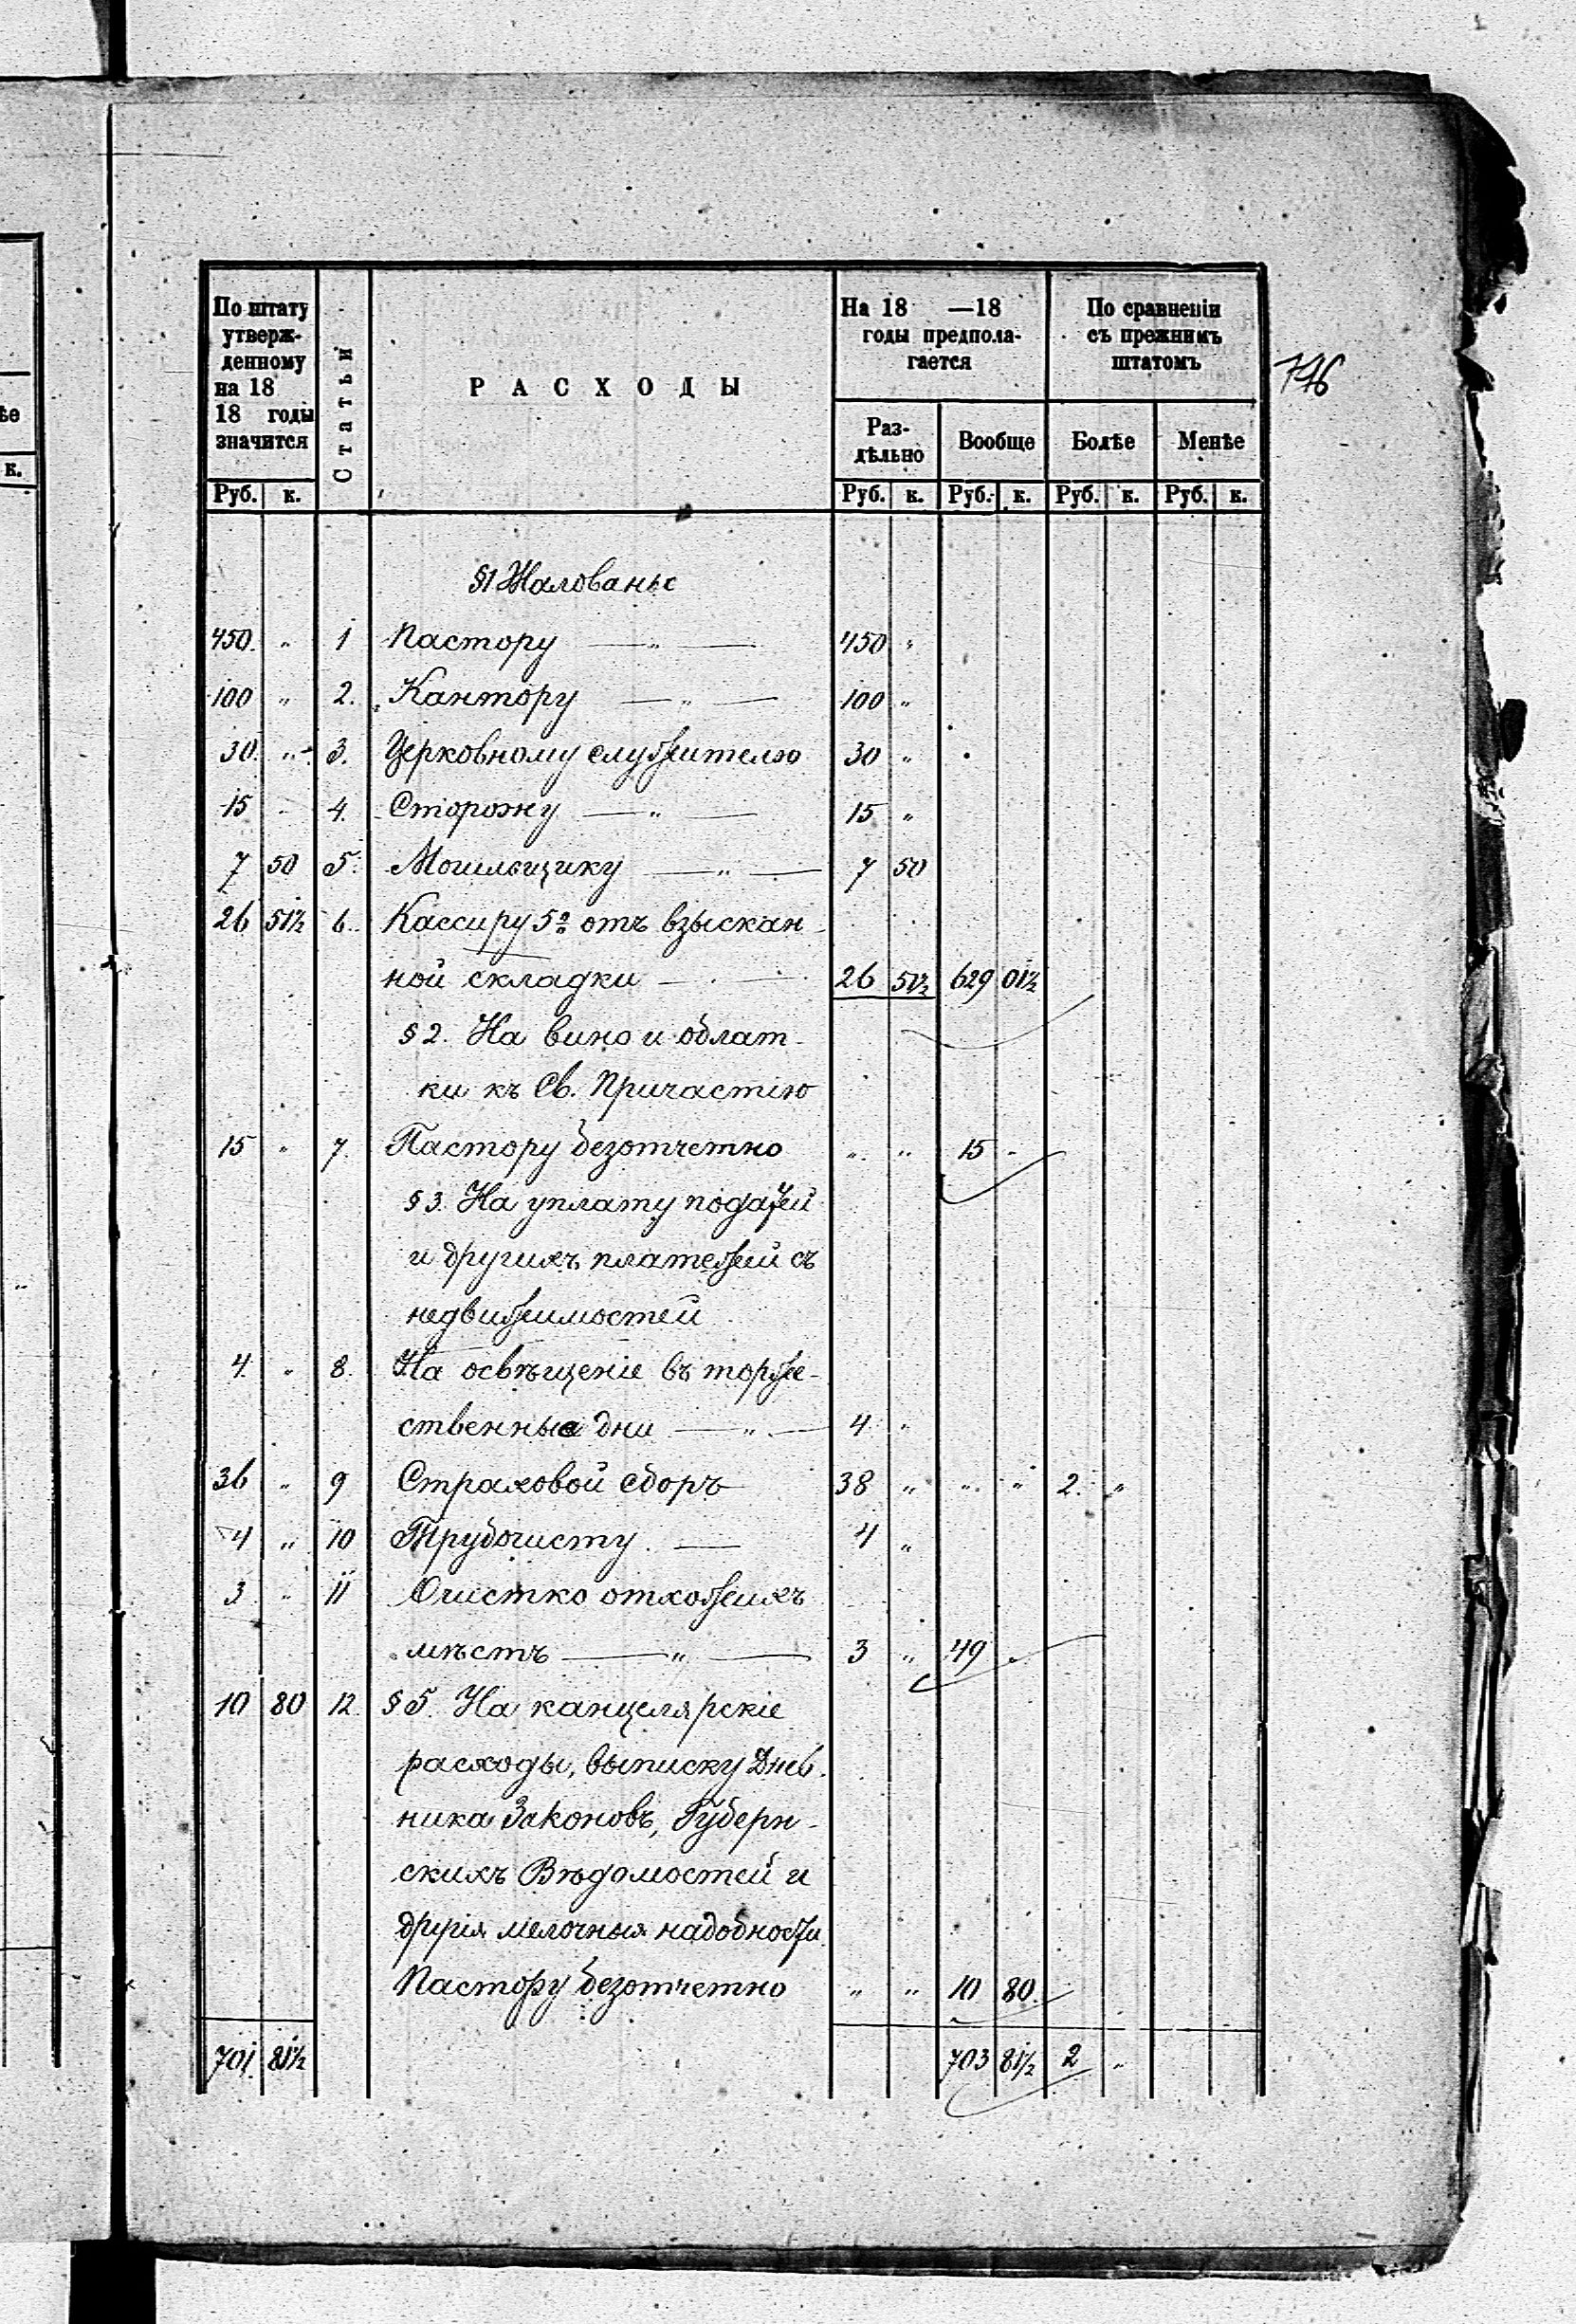 ѣе
к.
По штату
утверж-
денному
на 18
18 годы
значится
Статьи
РАСХОДЫ
На 18 —18
годы предпола-
гается
По сравненіи
съ прежнимъ
штатомъ
746
Раз-
дѣльно
Вообще
Болѣе
Менѣе
Руб. к. Руб. к. Руб. к. Руб. к. Руб. к.
§1 Жалованье
450. " 1 Пастору — " — 450 "
100 " 2. Кантору — " — 100 "
30. " 3. Церковному служителю 30 "
15 - 4. Сторожу — " — 15 "
7 50 5. Могильщику — " — 7 50
26 51½ 6. Кассиру 5% отъ взыскан-
ной складки — 26 51½ 629 01½
§ 2. На вино и облат-
ки къ Св. Причастію
15 " 7. Пастору безотчетно " " 15 -
§ 3. На уплату податей
и другихъ платежей съ
недвижимостей
4. " 8. На освѣщеніе въ торже-
ственные дни — " — 4 "
36 " 9 Страховой сборъ 38 " " " 2. "
4 " 10 Трубочисту. — 4 "
3 " 11 Очистко отхожихъ
мѣстъ — " — 3 " 49 "
10 80 12. § 5. На канцелярскіе
расходы, выписку Днев-
ника Законовъ, Губерн-
скихъ Вѣдомостей и
другія мелочныя надобности
Пастору безотчетно " " 10 80
701 81½ 703 81½ 2 "